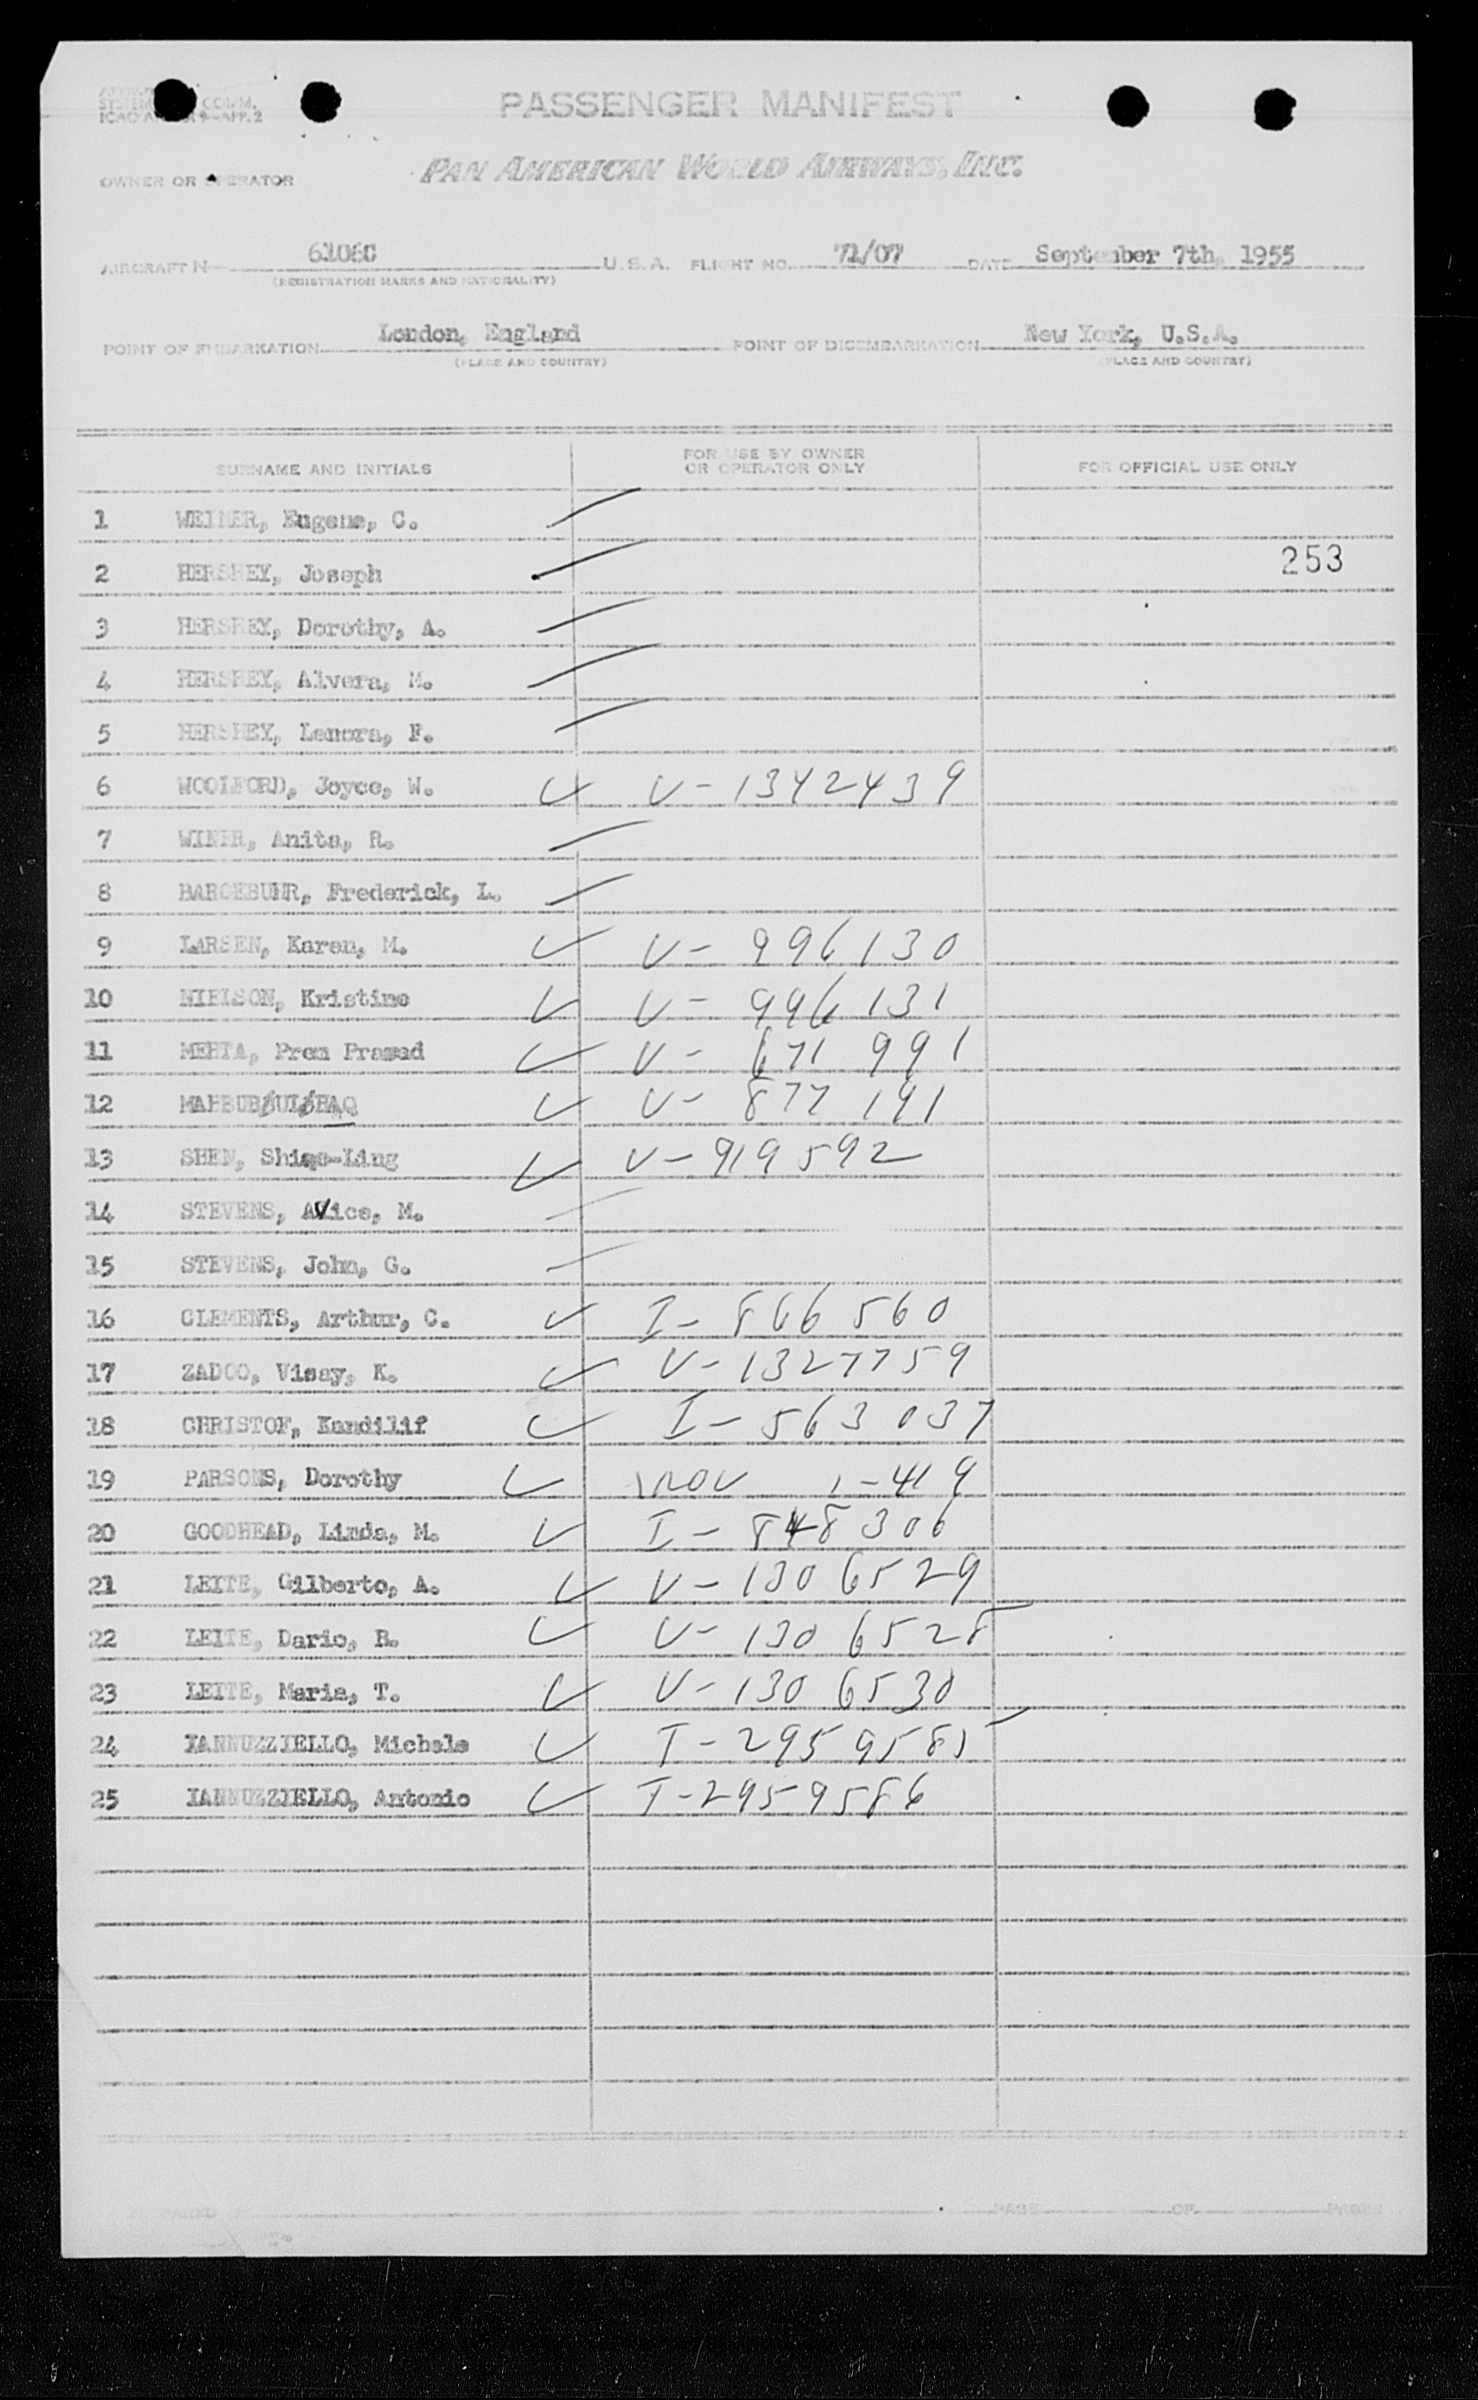 SYSTEM COMM.
PASSENGER MANIFEST
OWNER OR OPERATOR PAN AMERICAN WORLD AIRWAYS, INC.
AIRCRAFT N 6106C U.S.A. FLIGHT NO. 71/07 DATE September 7th, 1955
(REGISTRATION MARKS AND NATIONALITY)
POINT OF EMBARKATION London, England POINT OF DISEMBARKATION New York, U.S.A.
(PLACE AND COUNTRY) (PLACE AND COUNTRY)
SURNAME AND INITIALS FOR USE BY OWNER OR OPERATOR ONLY FOR OFFICIAL USE ONLY
1 WEINER, Eugene, C.
2 HERSHEY, Joseph 253
3 HERSHEY, Dorothy, A.
4 HERSHEY, Alvera, M.
5 HERSHEY, Lenora, F.
6 WOOLFORD, Joyce, W. V-1342439
7 WINER, Anita, R.
8 BARGEBUHR, Frederick, L.
9 LARSEN, Karen, M. V-996130
10 NIELSON, Kristine V-996131
11 MEHTA, Prem Prasad V-671991
12 MAHBUB/UL/HAQ V-877191
13 SHEN, -Ling V-919592
14 STEVENS, Avice, M.
15 STEVENS, John, G.
16 CLEMENTS, Arthur, C. I-866560
17 ZADOO, Vijay, K. V-1327759
18 CHRISTOF, Kandilif I-563037
19 PARSONS, Dorothy 1-419
20 GOODHEAD, Linda, M. I-848306
21 LEITE, Gilberto, A. V-1306529
22 LEITE, Dario, R. V-1306528
23 LEITE, Maria, T. V-1306530
24 IANNUZZIELLO, Michele T-2959585
25 IANNUZZIELLO, Antonio T-2959586
PREPARED PAGE OF PAGES